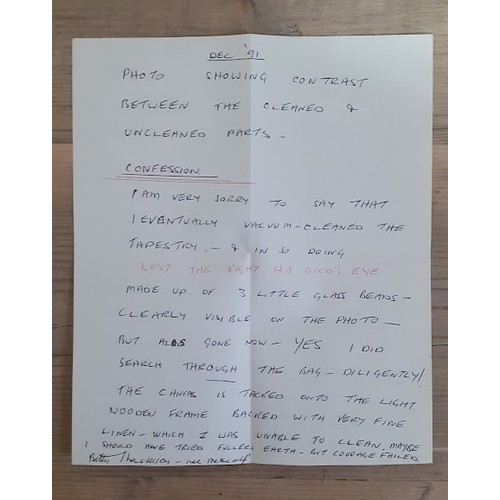 DEC '91
PHOTO SHOWING CONTRAST
BETWEEN THE CLEANED &
UNCLEANED PARTS -
CONFESSION
I AM VERY SORRY TO SAY THAT
I EVENTUALLY VACUUM-CLEANED THE
TAPESTRY - & IN SO DOING
LOST THE RIGHT H.S BIRDS EYE
MADE UP OF 3 LITTLE GLASS BEADS -
CLEARLY VISIBLE ON THE PHOTO -
BUT ALAS GONE NOW - YES I DID
SEARCH THROUGH THE BAG - DILIGENTLY!
THE CANVAS IS TACKED ONTO THE LIGHT
WOODEN FRAME BACKED WITH VERY FINE
LINEN - WHICH I WAS UNABLE TO CLEAN. MAYBE
I SHOULD HAVE TRIED FULLERS EARTH - BUT COURAGE FAILED
Betty